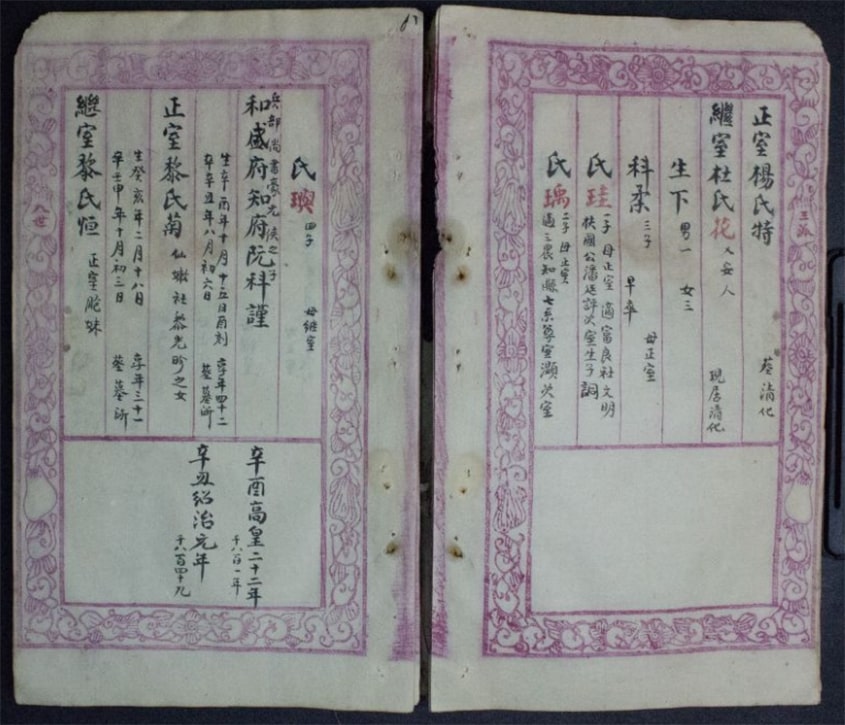 五派
正室楊氏特
葬清化
繼室杜氏花 乂安人
現居清化
生下 男一 女三
科柔 三子 早卒 母正室
氏珪 一子 母正室 適富良社文明
扶國公潘廷評次室生子詞
氏瑀 二子 母正室
適之農知縣七系尊室灝次室
氏㻛 四子 母繼室
兵部尚書豪光侯之子
和盛府知府阮科謹
生辛酉年十月十五日酉刻 享年四十二
卒辛丑年八月初六日 葬墓所
正室黎氏菊 仙 社黎光珍之女
生癸亥年二月十八日 享年三十一
卒壬申年十月初三日 葬墓所
繼室黎氏恒 正室胞妹
八世
辛酉高皇二十二年
千八百一年
辛丑紹治元年
千八百四十九